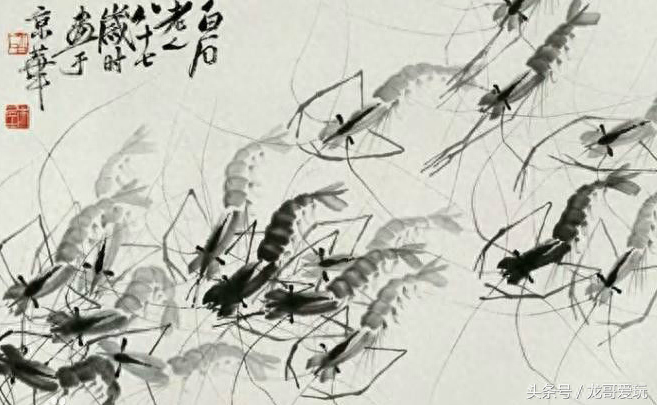 白石
老人
八十七
歲时
画于
京華
头条号／龙哥爱玩